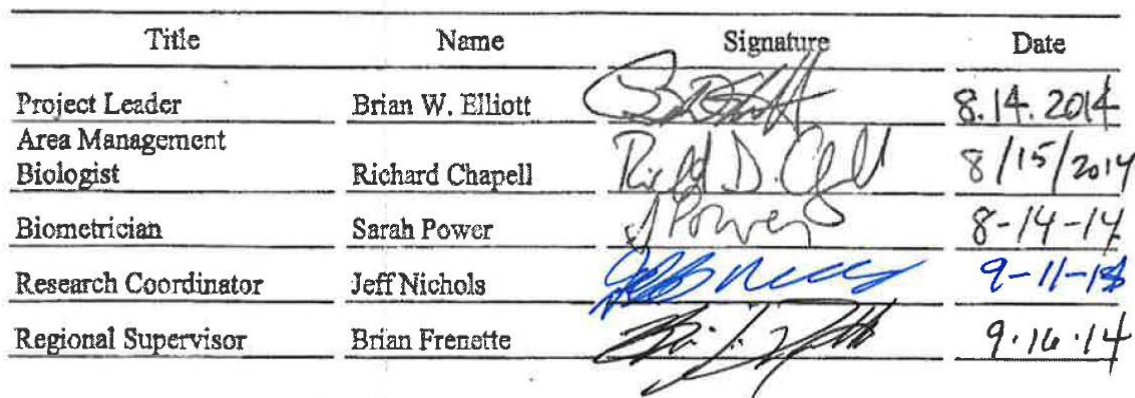 Title Name Signature Date
Project Leader Brian W. Elliott 8.14.2014
Area Management
Biologist Richard Chapell Richard D. Chapell 8/15/2014
Biometrician Sarah Power S Power 8-14-14
Research Coordinator Jeff Nichols 9-11-14
Regional Supervisor Brian Frenette 9.16.14